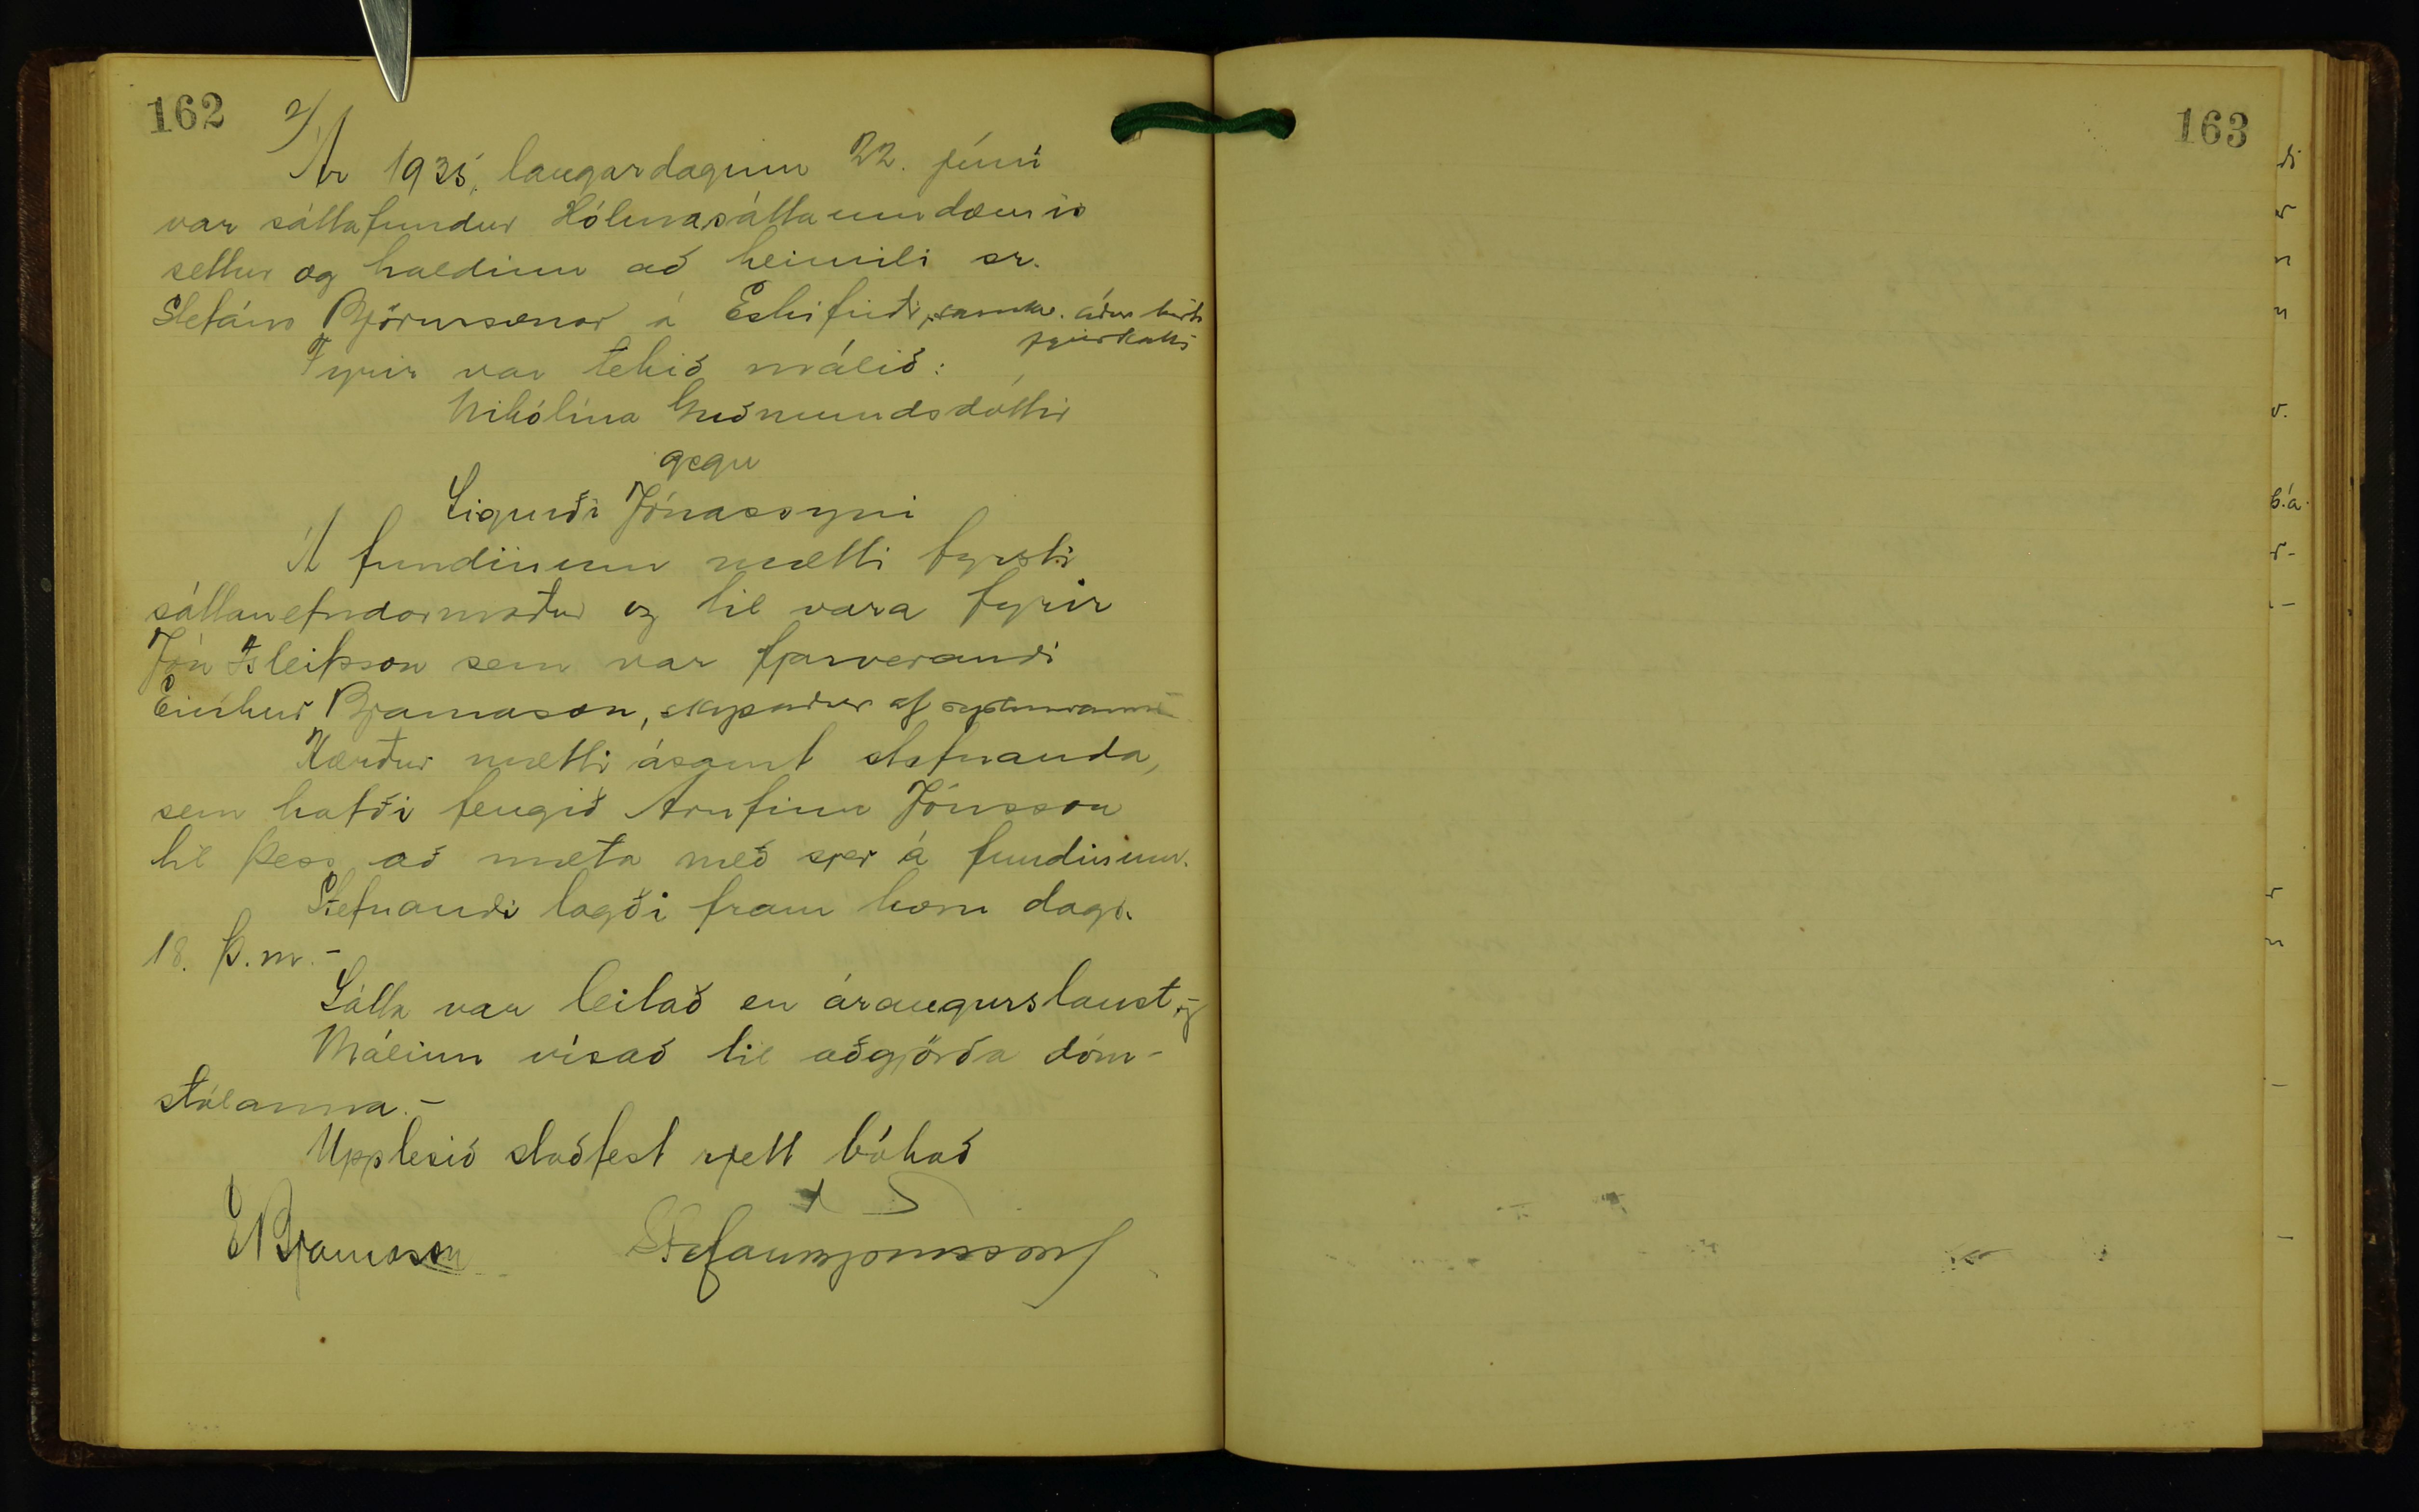 162
2/
Ár 1935, laugardaginn 22. júní
var sáttafundur Hólmasáttaumdæmis
settur og haldinn að heimili sr.
Stefáns Björnssonar á Eskifirði, samkv. áður birtu
fyrirkalli
Fyrir var tekið málið:
Nikólína Guðmundsdóttir
gegn
Sigurði Jónassyni
Á fundinum mætti fyrsti
sáttanefndarmaður og til vara fyrir
Jón Ísleifsson sem var fjarverandi
Einar Bjarnason, skipaður af sýslumanni
Kærður mætti ásamt stefnanda,
sem hafði fengið Arnfinn Jónsson
til þess að mæta með sjer á fundinum.
Stefnandi lagði fram kæru dags.
18. þ.m. -
Sátta var leitað en árangurslaust og
Málinu vísað til aðgjörða dóm-
stólanna. -
Upplesið staðfest rjett bókað
EBjarnason Stefán Björnsson
163
di
r
n
n
v.
b.á.
r-
-
r
n
-
-